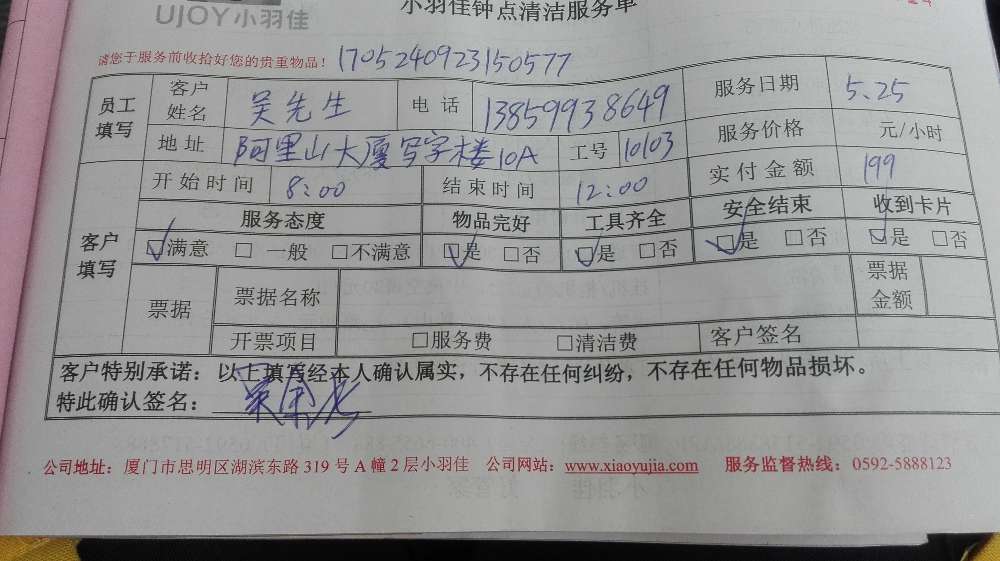 UJOY小羽佳
小羽佳钟点清洁服务单
请您于服务前收拾好您的贵重物品！ 170524092315057​7
员工填写 客户姓名 吴先生 电话 13859938649 服务日期 5.25
地址 阿里山大厦写字楼10A 工号 10103 服务价格 元/小时
开始时间 8:00 结束时间 12:00 实付金额 199
客户填写 服务态度 物品完好 工具齐全 安全结束 收到卡片
☑满意 □一般 □不满意 ☑是 □否 ☑是 □否 ☑是 □否 ☑是 □否
票据 票据名称 票据金额
开票项目 □服务费 □清洁费 客户签名
客户特别承诺：以上填写经本人确认属实，不存在任何纠纷，不存在任何物品损坏。
特此确认签名：
公司地址：厦门市思明区湖滨东路 319 号 A 幢 2 层小羽佳 公司网站：www.xiaoyujia.com 服务监督热线：0592-5888123